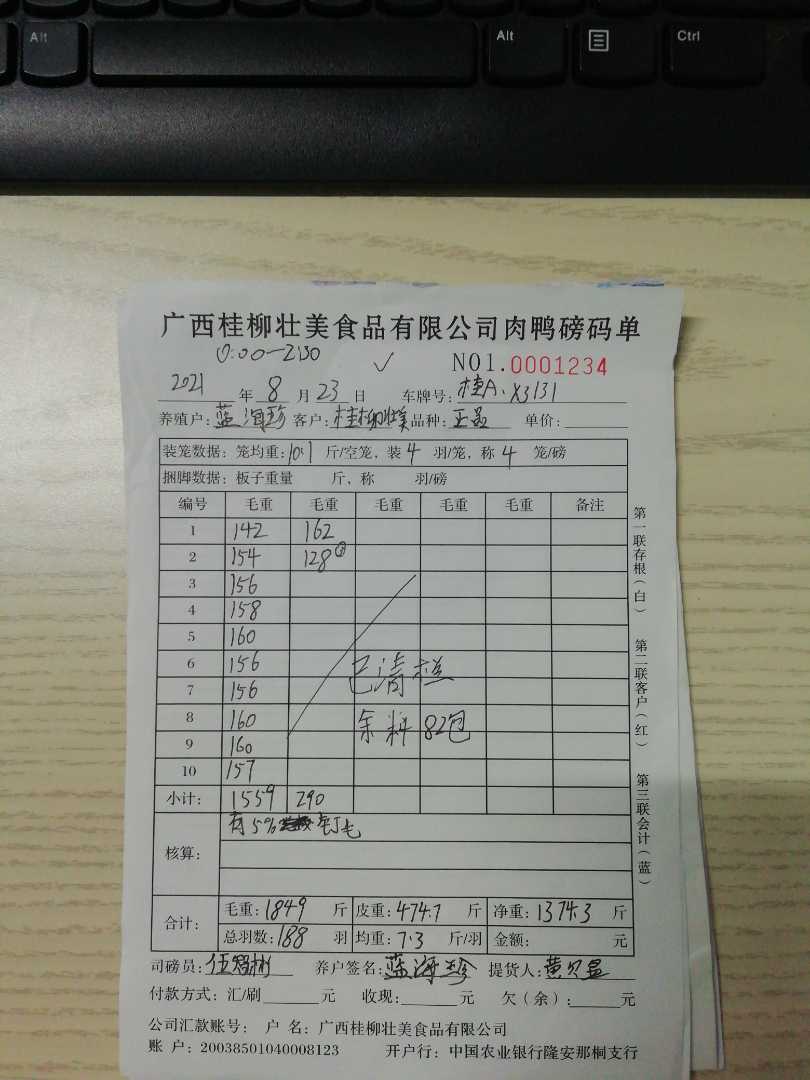 Alt
Alt
Ctrl
广西桂柳壮美食品有限公司肉鸭磅码单
NO1.0001234
2021年8月23日 车牌号:桂A·X3131
养殖户:蓝海珍 客户:桂柳壮美 品种:正品 单价:
装笼数据:笼均重:10.1斤/空笼,装4羽/笼,称4笼/磅
捆脚数据:板子重量 斤,称 羽/磅
编号 毛重 毛重 毛重 毛重 毛重 备注
1 142 162
2 154 128
3 156
4 158
5 160
6 156
7 156
8 160
9 160
10 157
已清栏
余料82包
小计: 1559 290
核算: 有5% 钉毛
合计: 毛重:1849斤 皮重:474.7斤 净重:1374.3斤
总羽数:188羽 均重:7.3斤/羽 金额: 元
司磅员: 养户签名:蓝海珍 提货人:
付款方式:汇/刷 元 收现: 元 欠(余): 元
公司汇款账号: 户 名:广西桂柳壮美食品有限公司
账 户:20038501040008123 开户行:中国农业银行隆安那桐支行
第一联存根(白)
第二联客户(红)
第三联会计(蓝)